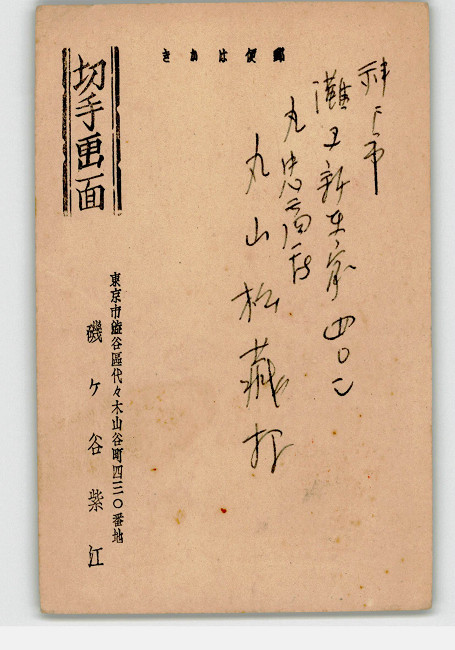 郵便はかき
神戸市
灘区新在家四〇二
丸忠商店
丸山松藏様
東京市澁谷區代々木山谷町四三〇番地
磯ケ谷紫江
切手画面